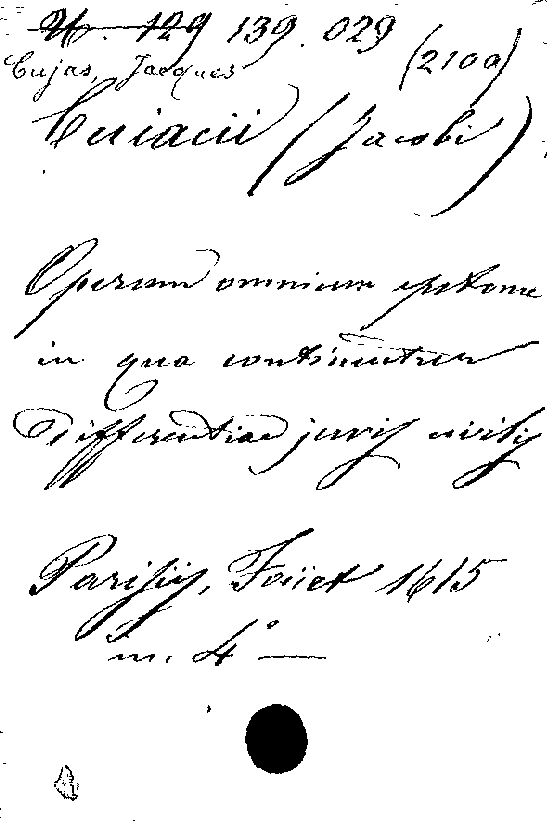 U. 129 139.029
Cujas, Jacques (2100)
Cuiacii (Jacobi)
Operum omnium epitome
in qua continentur
Differentiae juris civilis
Parisiis, Foüet 1615
in. 4° —